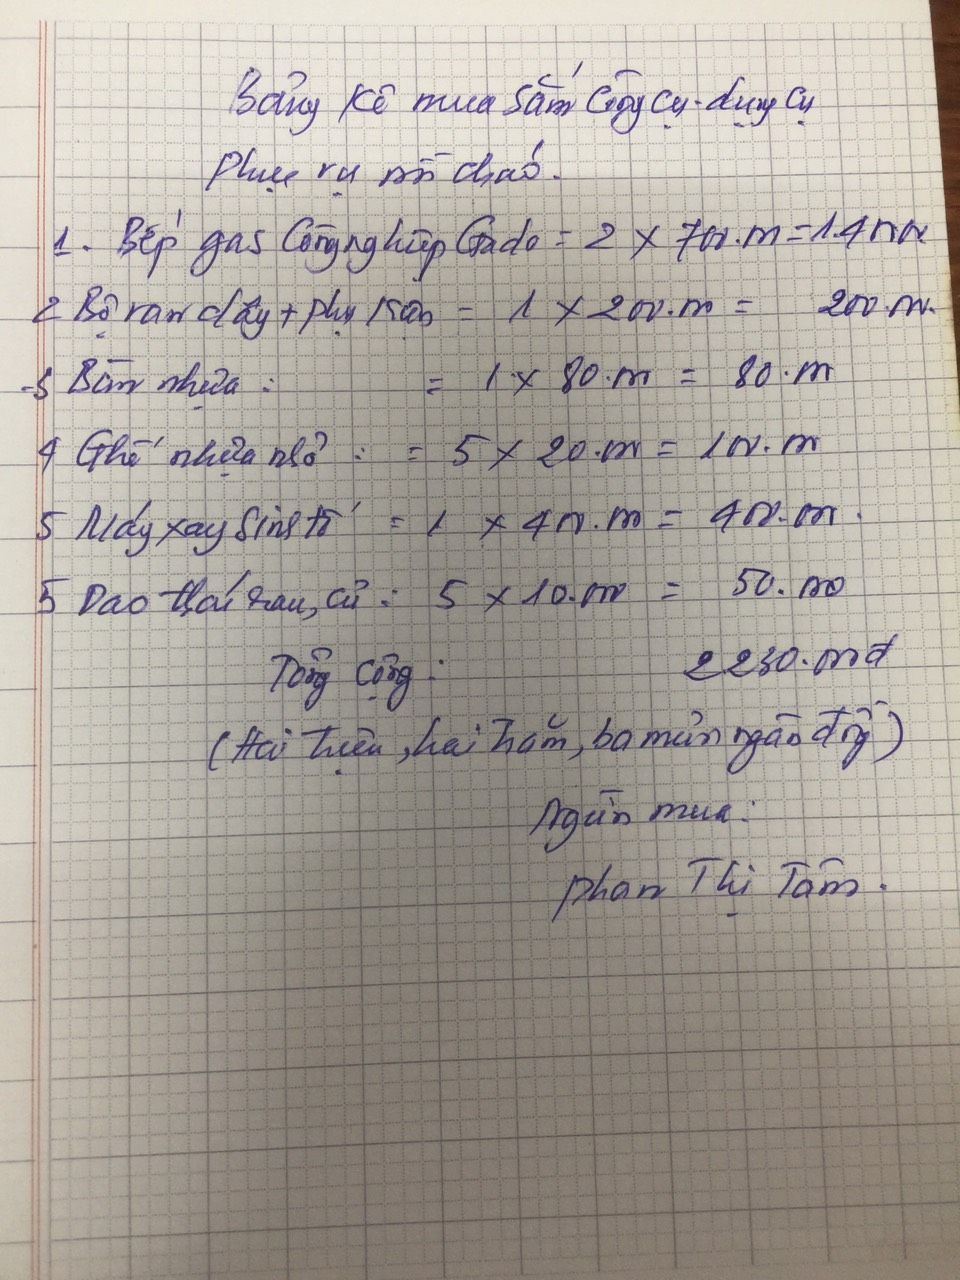 Bảng Kê mua sắm Công cụ - dụng cụ
Phục vụ nồi cháo.
1. Bếp gas Công nghiệp Gado = 2 x 700.000 = 1.400.000
2 Bộ van dây + phụ kiện = 1 x 200.000 = 200.000.
3 Bàn nhựa : = 1 x 80.000 = 80.000
4 Ghế nhựa nhỏ : = 5 x 20.000 = 100.000
5 Máy xay Sinh tố = 1 x 400.000 = 400.000.
5 Dao thái rau, củ : 5 x 10.000 = 50.000
Tổng cộng : 2230.000đ
(Hai triệu, hai trăm, ba mươi ngàn đồng)
Người mua :
Phan Thị Tâm.